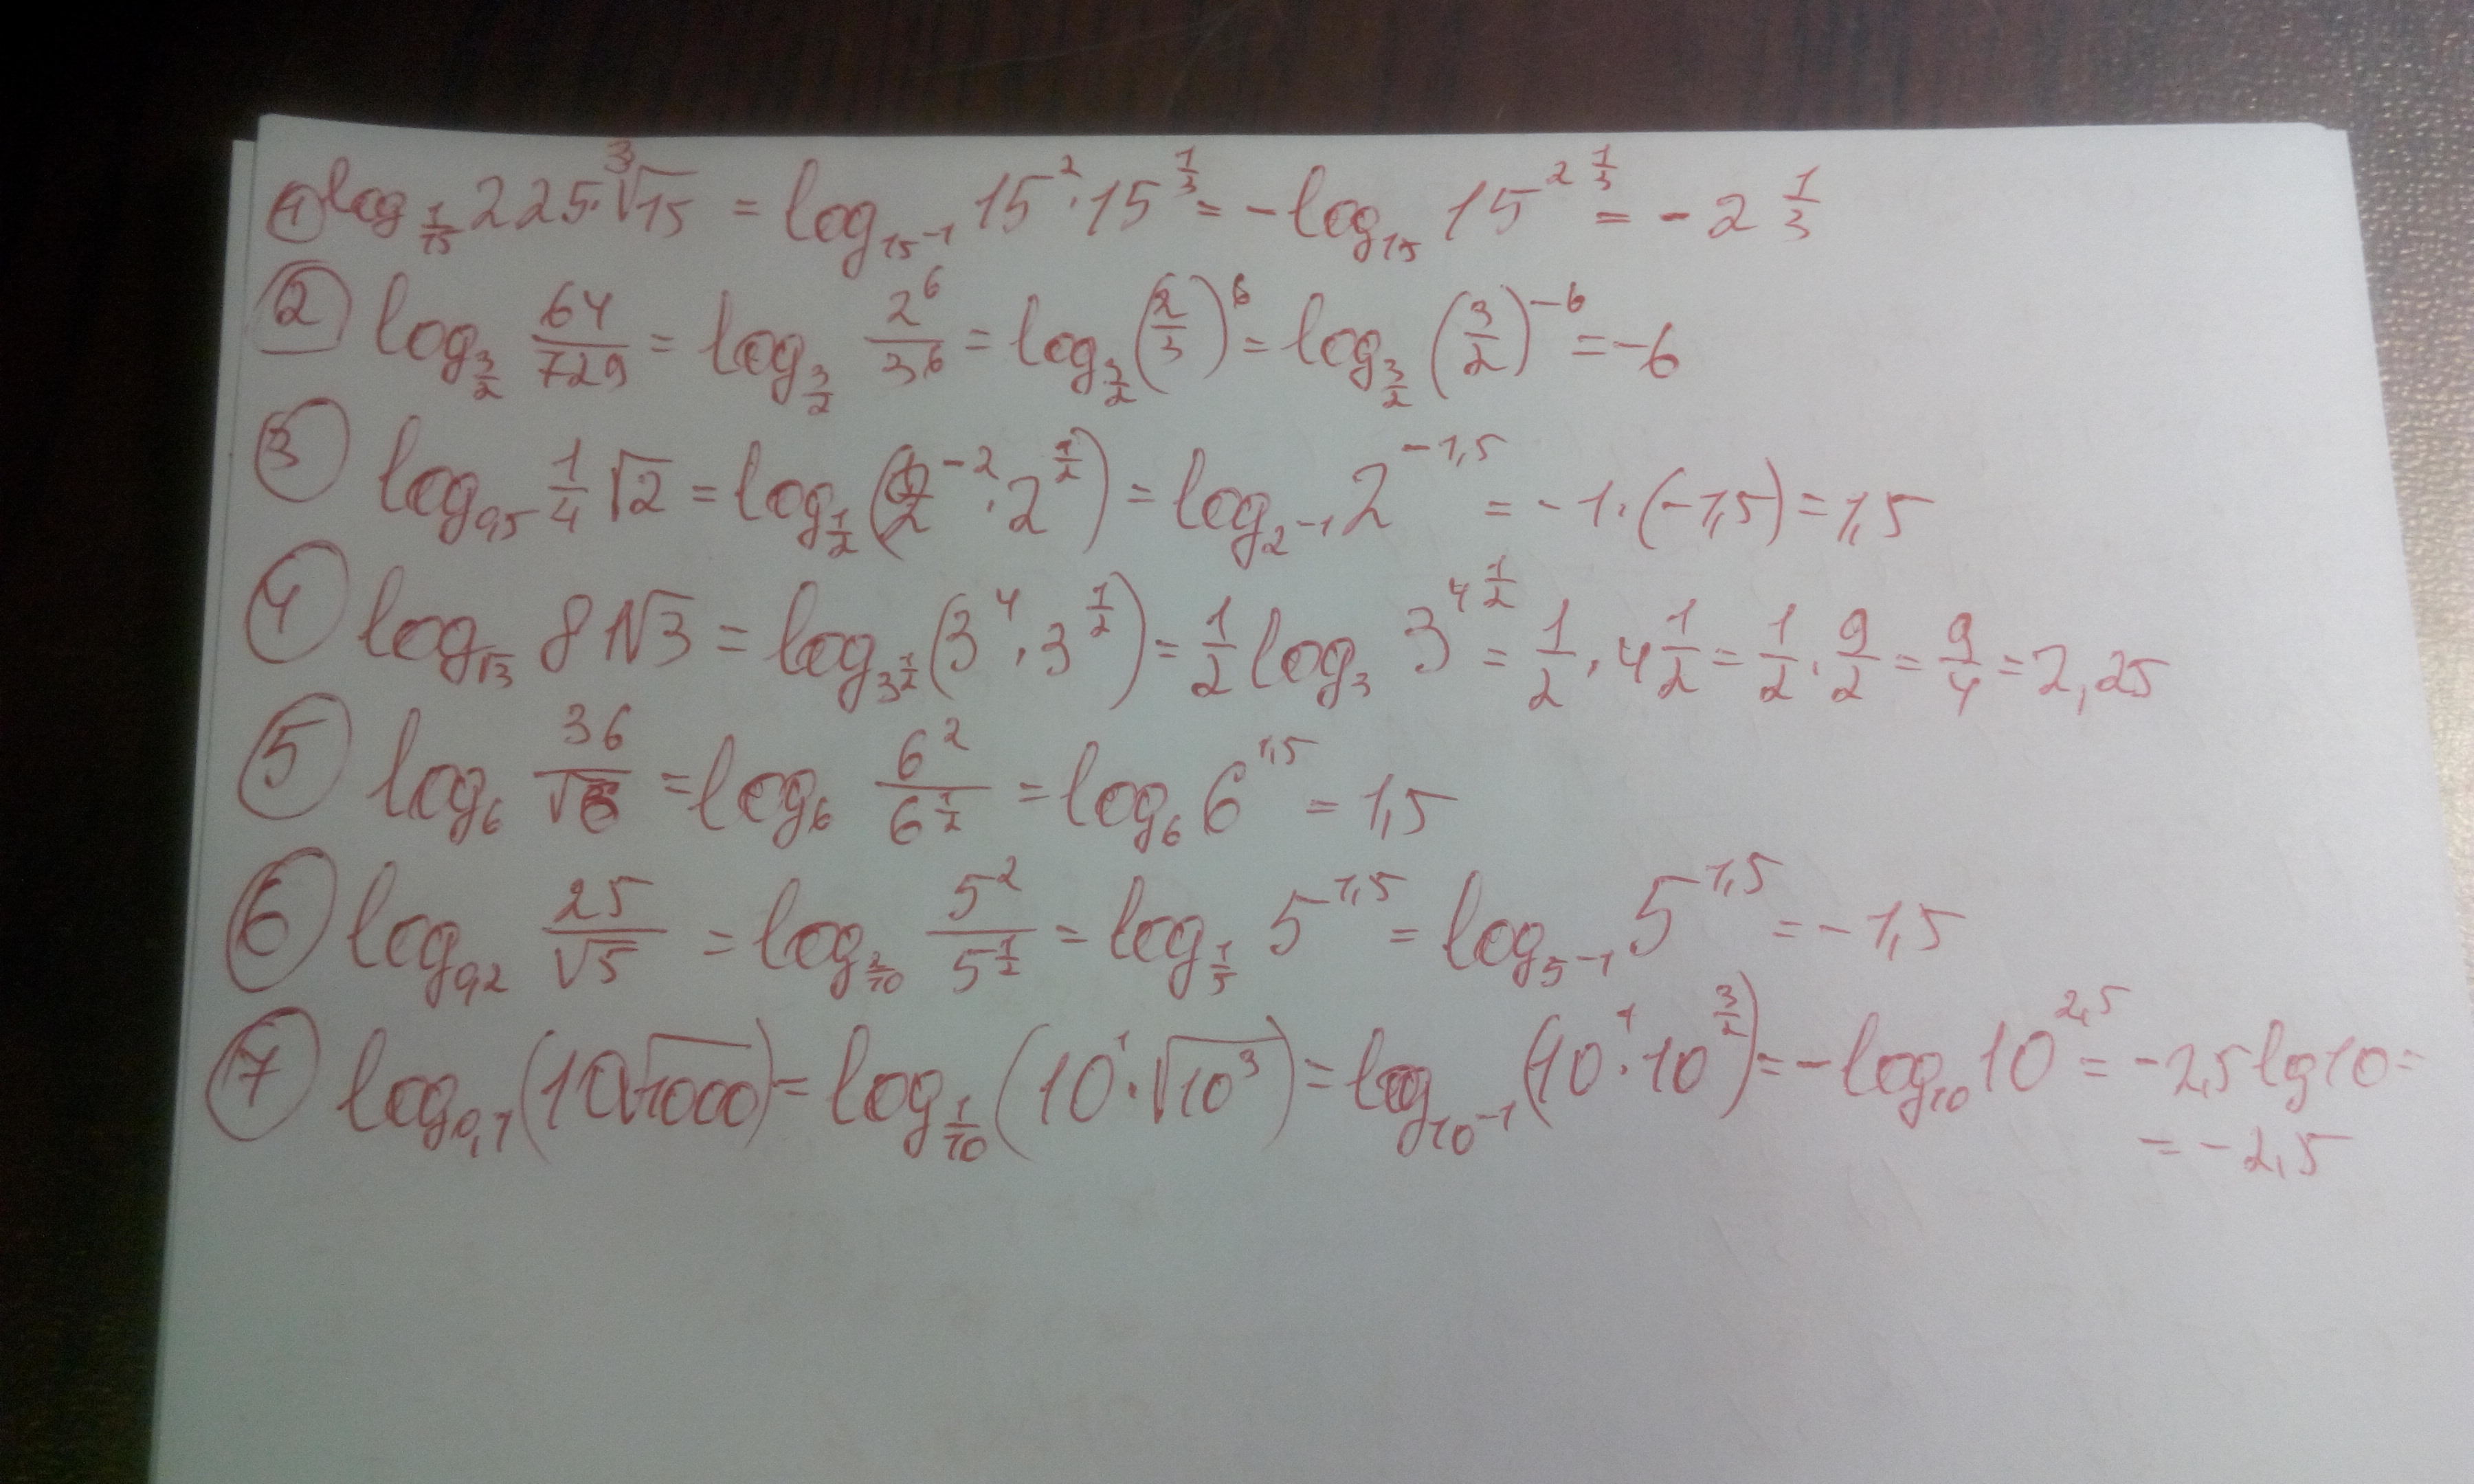 ① log_{1/15} 225·∛15 = log_{15⁻¹} 15²·15^{1/3} = -log_{15} 15^{2 1/3} = -2 1/3
② log_{3/2} 64/729 = log_{3/2} 2⁶/3⁶ = log_{3/2} (2/3)⁶ = log_{3/2} (3/2)⁻⁶ = -6
③ log_{0,5} 1/4 √2 = log_{1/2} (2⁻²·2^{1/2}) = log_{2⁻¹} 2^{-1,5} = -1·(-1,5) = 1,5
④ log_{√3} 81√3 = log_{3^{1/2}} (3⁴·3^{1/2}) = 1/2 log₃ 3^{4 1/2} = 1/2 · 4 1/2 = 1/2 · 9/2 = 9/4 = 2,25
⑤ log₆ 36/√6 = log₆ 6²/6^{1/2} = log₆ 6^{1,5} = 1,5
⑥ log_{0,2} 25/√5 = log_{2/10} 5²/5^{1/2} = log_{1/5} 5^{1,5} = log_{5⁻¹} 5^{1,5} = -1,5
⑦ log_{0,1} (10√1000) = log_{1/10} (10¹·√10³) = log_{10⁻¹} (10¹·10^{3/2}) = -log_{10} 10^{2,5} = -2,5 lg10 =
= -2,5